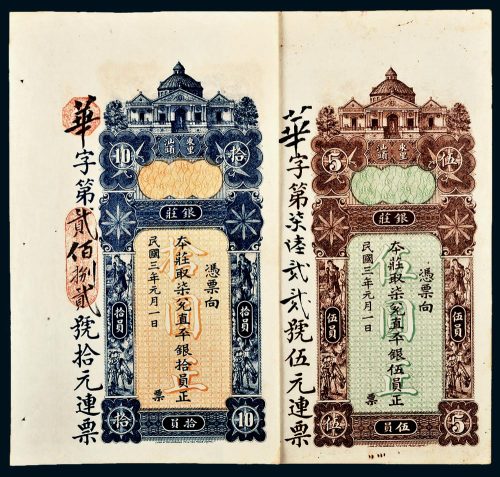 拾
10
東里
汕頭
銀莊
憑票向
本莊取柒兌直平銀拾員正
民國三年元月一日
票
拾員
拾員
拾員
拾
10
華字第貳佰捌貳號拾元連票
伍
5
東里
汕頭
銀莊
憑票向
本莊取柒兌直平銀伍員正
民國三年元月一日
票
伍員
伍員
伍員
伍
5
華字第柒陸弍弍號伍元連票